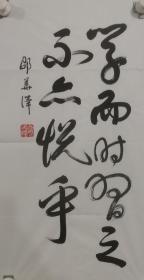 学而时习之
不亦悦乎
邵华泽